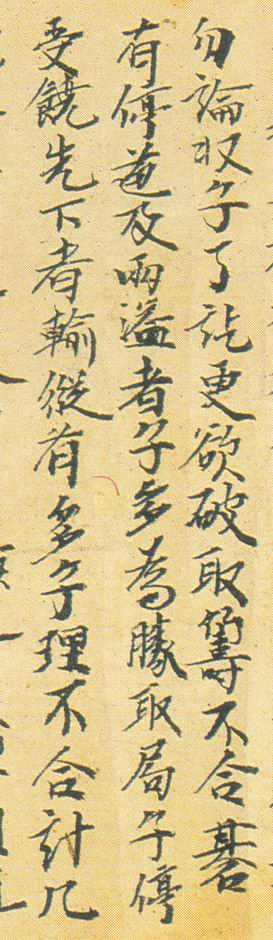 勿論収子了訖更欲破取籌不合碁
有停道及兩溢者子多為勝取局子停
受饒先下者輸縱有多子理不合計凡